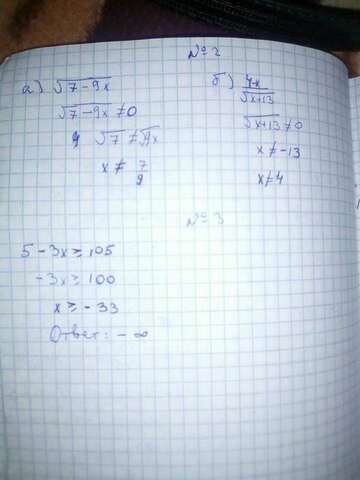 №2
а) √7-9x
√7-9x ≠0
√7 ≠ √9x
x ≠ 7/9
б) 4x/√x+13
√x+13 ≠0
x ≠ -13
x ≠ 4
№3
5-3x ≥ 105
-3x ≥ 100
x ≥ -33
Ответ: -∞